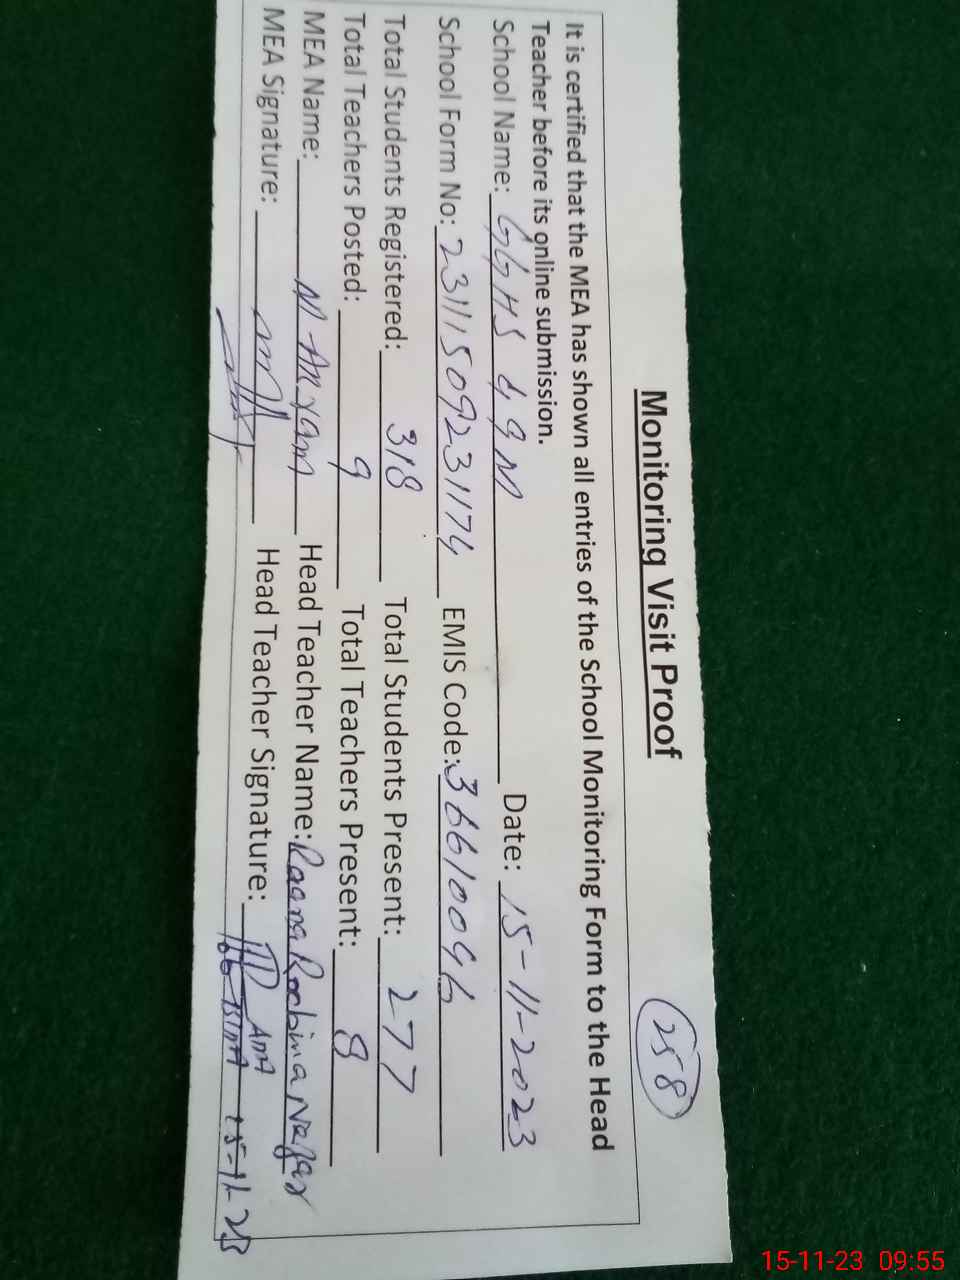 Monitoring Visit Proof
258
It is certified that the MEA has shown all entries of the School Monitoring Form to the Head
Teacher before its online submission.
School Name: GGHS 49M Date: 15-11-2023
School Form No: 23111509231174 EMIS Code: 36610096
Total Students Registered: 318 Total Students Present: 277
Total Teachers Posted: 9 Total Teachers Present: 8
MEA Name: M. Maryam Head Teacher Name: Raana Robina Nafas
MEA Signature: Head Teacher Signature:
15-11-23
15-11-23 09:55